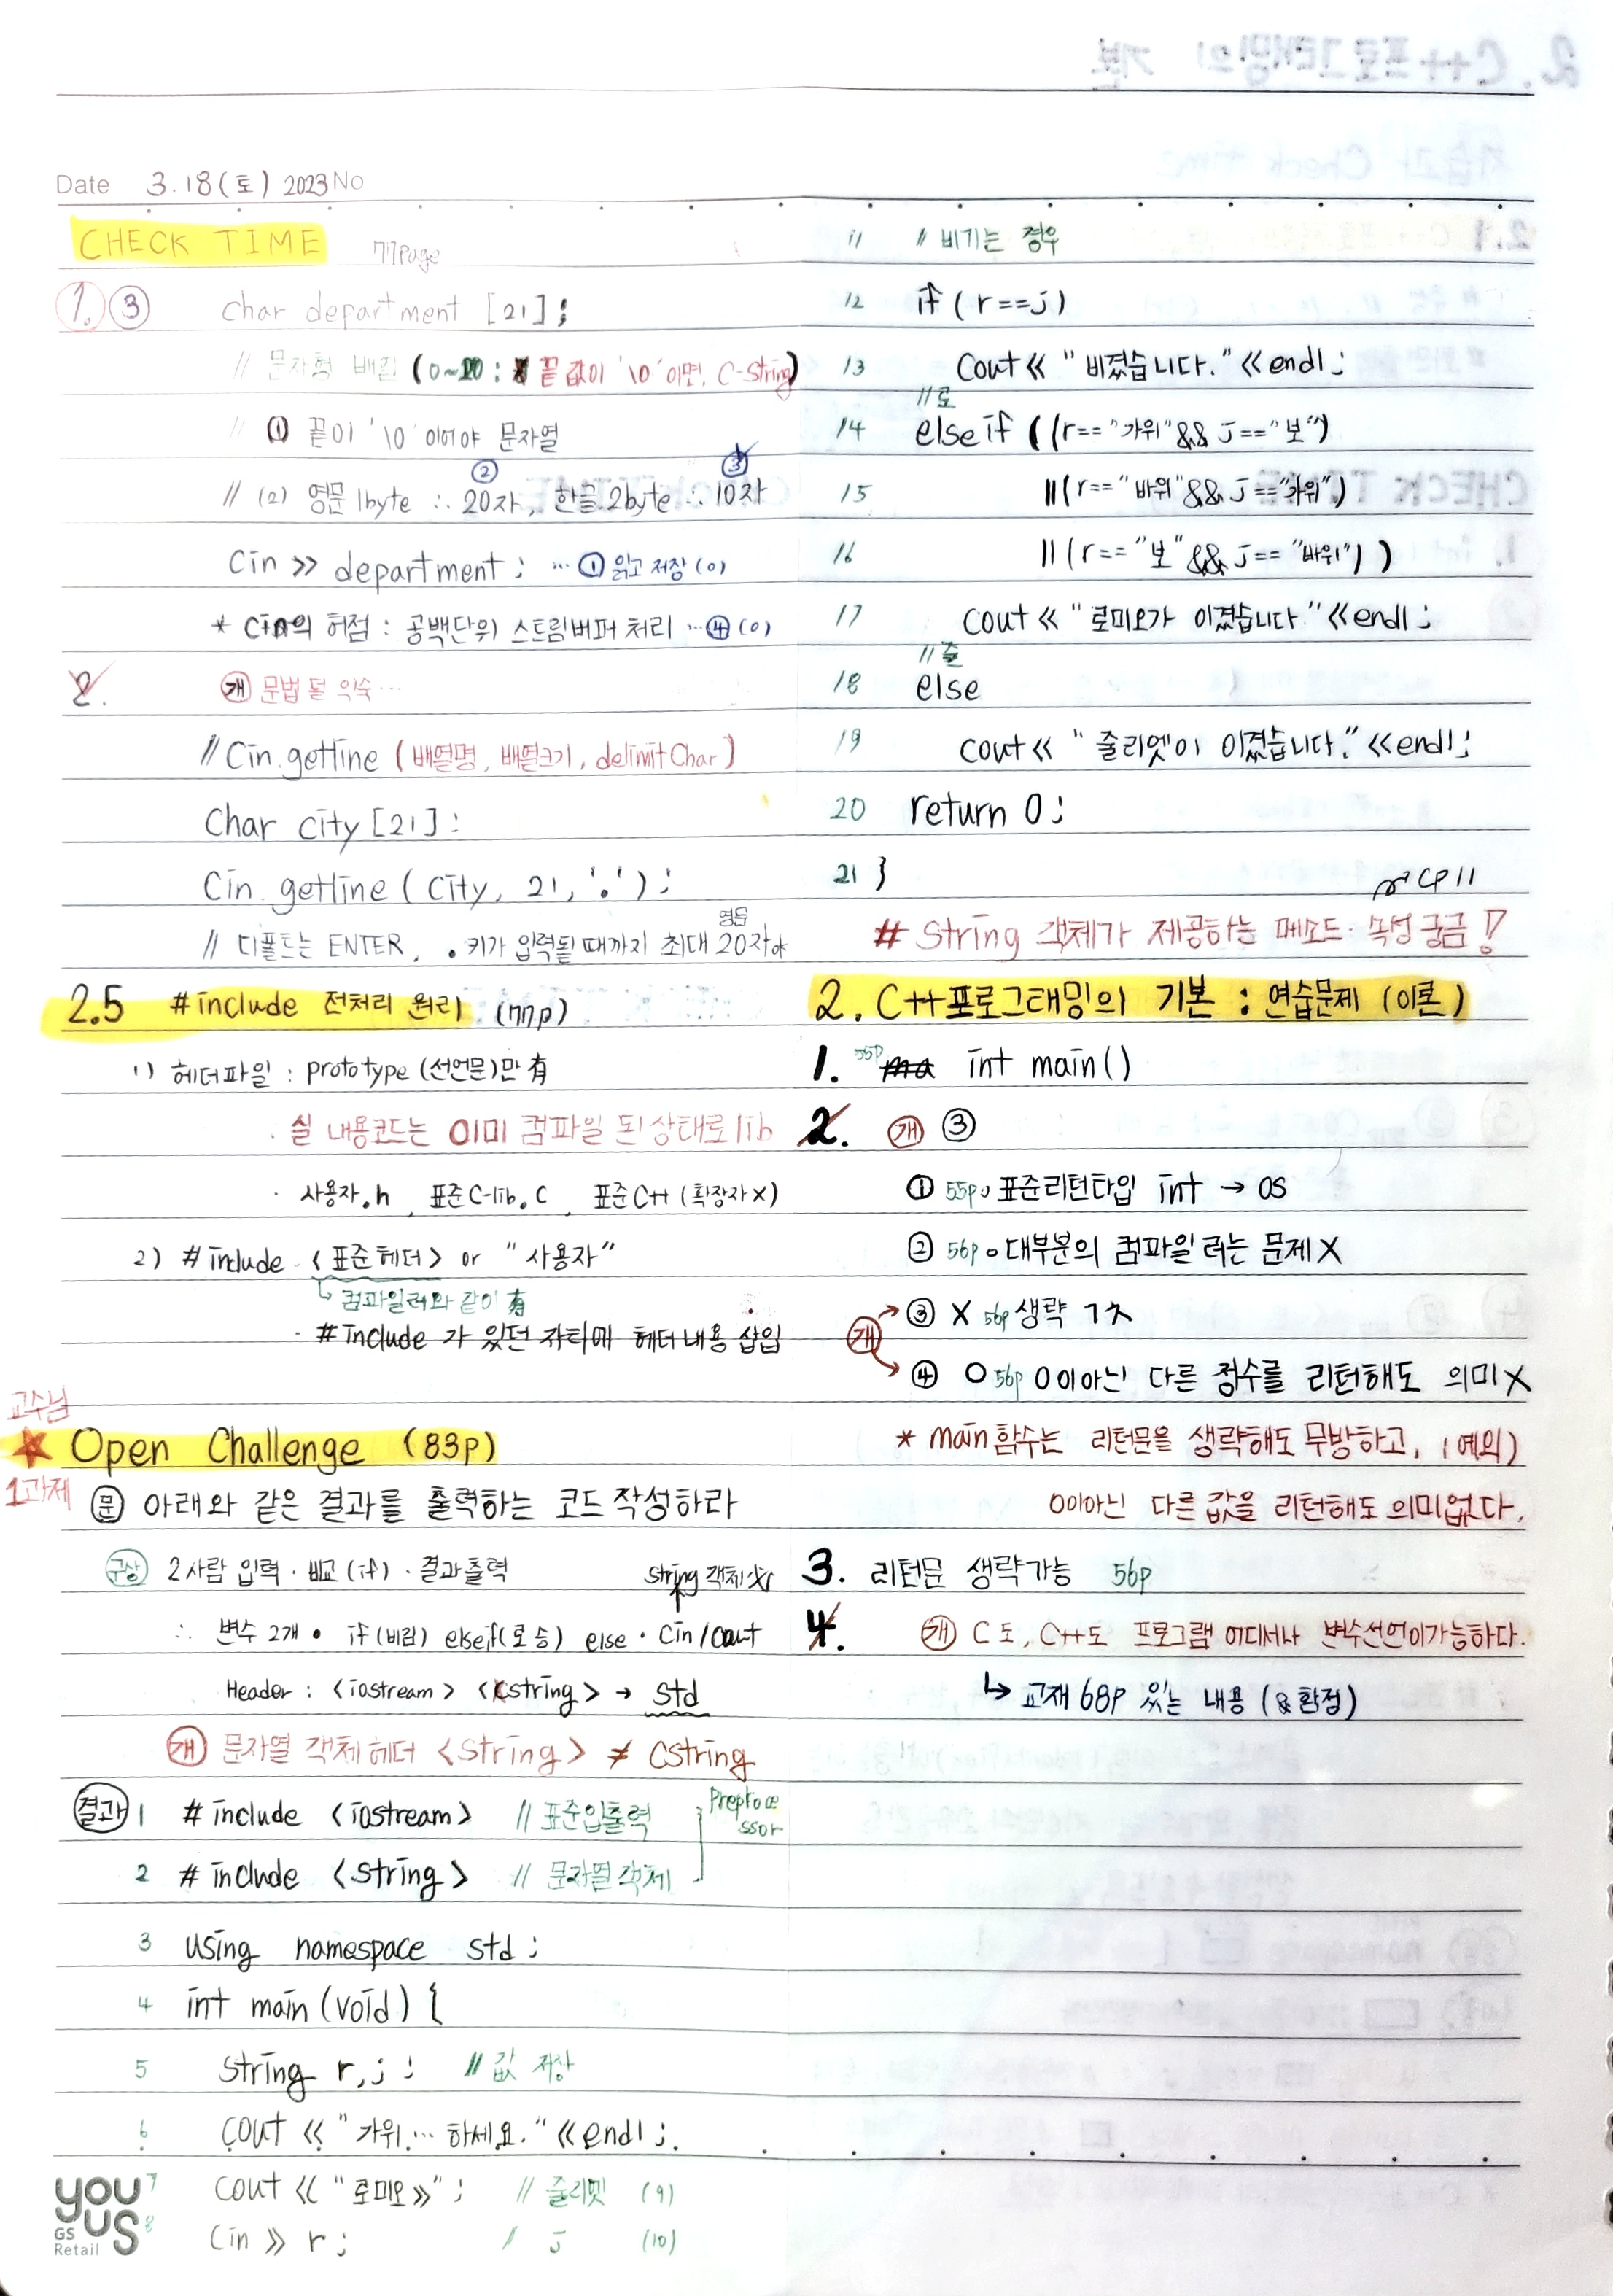 Date 3.18(토) 2023 No
CHECK TIME 77Page
1. ③ char department [21];
// 문자형 배열 (0~20 : 끝 값이 '\0' 이면, C-String)
// ① 끝이 '\0' 이어야 문자열
② ③
// (2) 영문 1byte ∴ 20자, 한글 2byte ∴ 10자
Cin >> department ; … ① 읽고 저장 (O)
* Cin의 허점 : 공백단위 스트림버퍼 처리 … ④ (O)
2. 개 문법 덜 익숙…
// Cin.getline (배열명, 배열크기, delimitChar)
Char city [21] ;
Cin.getline ( City, 21, '.' ) ;
영문
// 디폴트는 ENTER, . 키가 입력될 때까지 최대 20자
2.5 #include 전처리 원리 (77p)
1) 헤더파일 : prototype (선언문)만 有
· 실 내용코드는 이미 컴파일 된 상태로 lib
· 사용자.h , 표준C-lib.C , 표준C++ (확장자X)
2) #include <표준헤더> or "사용자"
↳ 컴파일러와 같이 有
· #include 가 있던 자리에 헤더내용 삽입
교수님
★ Open Challenge (83p)
1과제
문 아래와 같은 결과를 출력하는 코드 작성하라
구상 2사람 입력 · 비교(if) · 결과출력 string 객체
∴ 변수 2개 • if (비김) else if(로 승) else · Cin/Cout
Header : <iostream> <Cstring> → std
개 문자열 객체 헤더 <String> ≠ CString
결과 1 #include <iostream> // 표준입출력 Preproce
ssor
2 #include <string> // 문자열 객체
3 using namespace std ;
4 int main (void) {
5 string r, j ; // 값 저장
6 cout << "가위 … 하세요." << endl ;
7 cout << "로미오>>" ; // 줄리엣 (9)
8 Cin >> r ; // j (10)
you
us
GS
Retail
11 // 비기는 경우
12 if (r==j)
13 Cout << "비겼습니다." << endl ;
//로
14 else if ((r=="가위"&& j=="보")
15 ||(r=="바위"&& j=="가위")
16 ||(r=="보"&& j=="바위") )
17 cout << "로미오가 이겼습니다" << endl ;
//줄
18 else
19 cout << "줄리엣이 이겼습니다." << endl ;
20 return 0 ;
21 }
# String 객체가 제공하는 메소드·속성 궁금!
2. C++프로그래밍의 기본 : 연습문제 (이론)
1. 55p int main()
2. 개 ③
① 55p 표준리턴타입 int → OS
② 56p 대부분의 컴파일러는 문제 X
개 ③ X 56p 생략 가능
④ O 56p 0이아닌 다른 정수를 리턴해도 의미 X
* main 함수는 리턴문을 생략해도 무방하고, (예외)
0이아닌 다른 값을 리턴해도 의미없다.
3. 리턴문 생략가능 56p
4. 개 C도, C++도 프로그램 어디서나 변수선언이가능하다.
↳ 교재 68p 있는 내용 (& 환점)